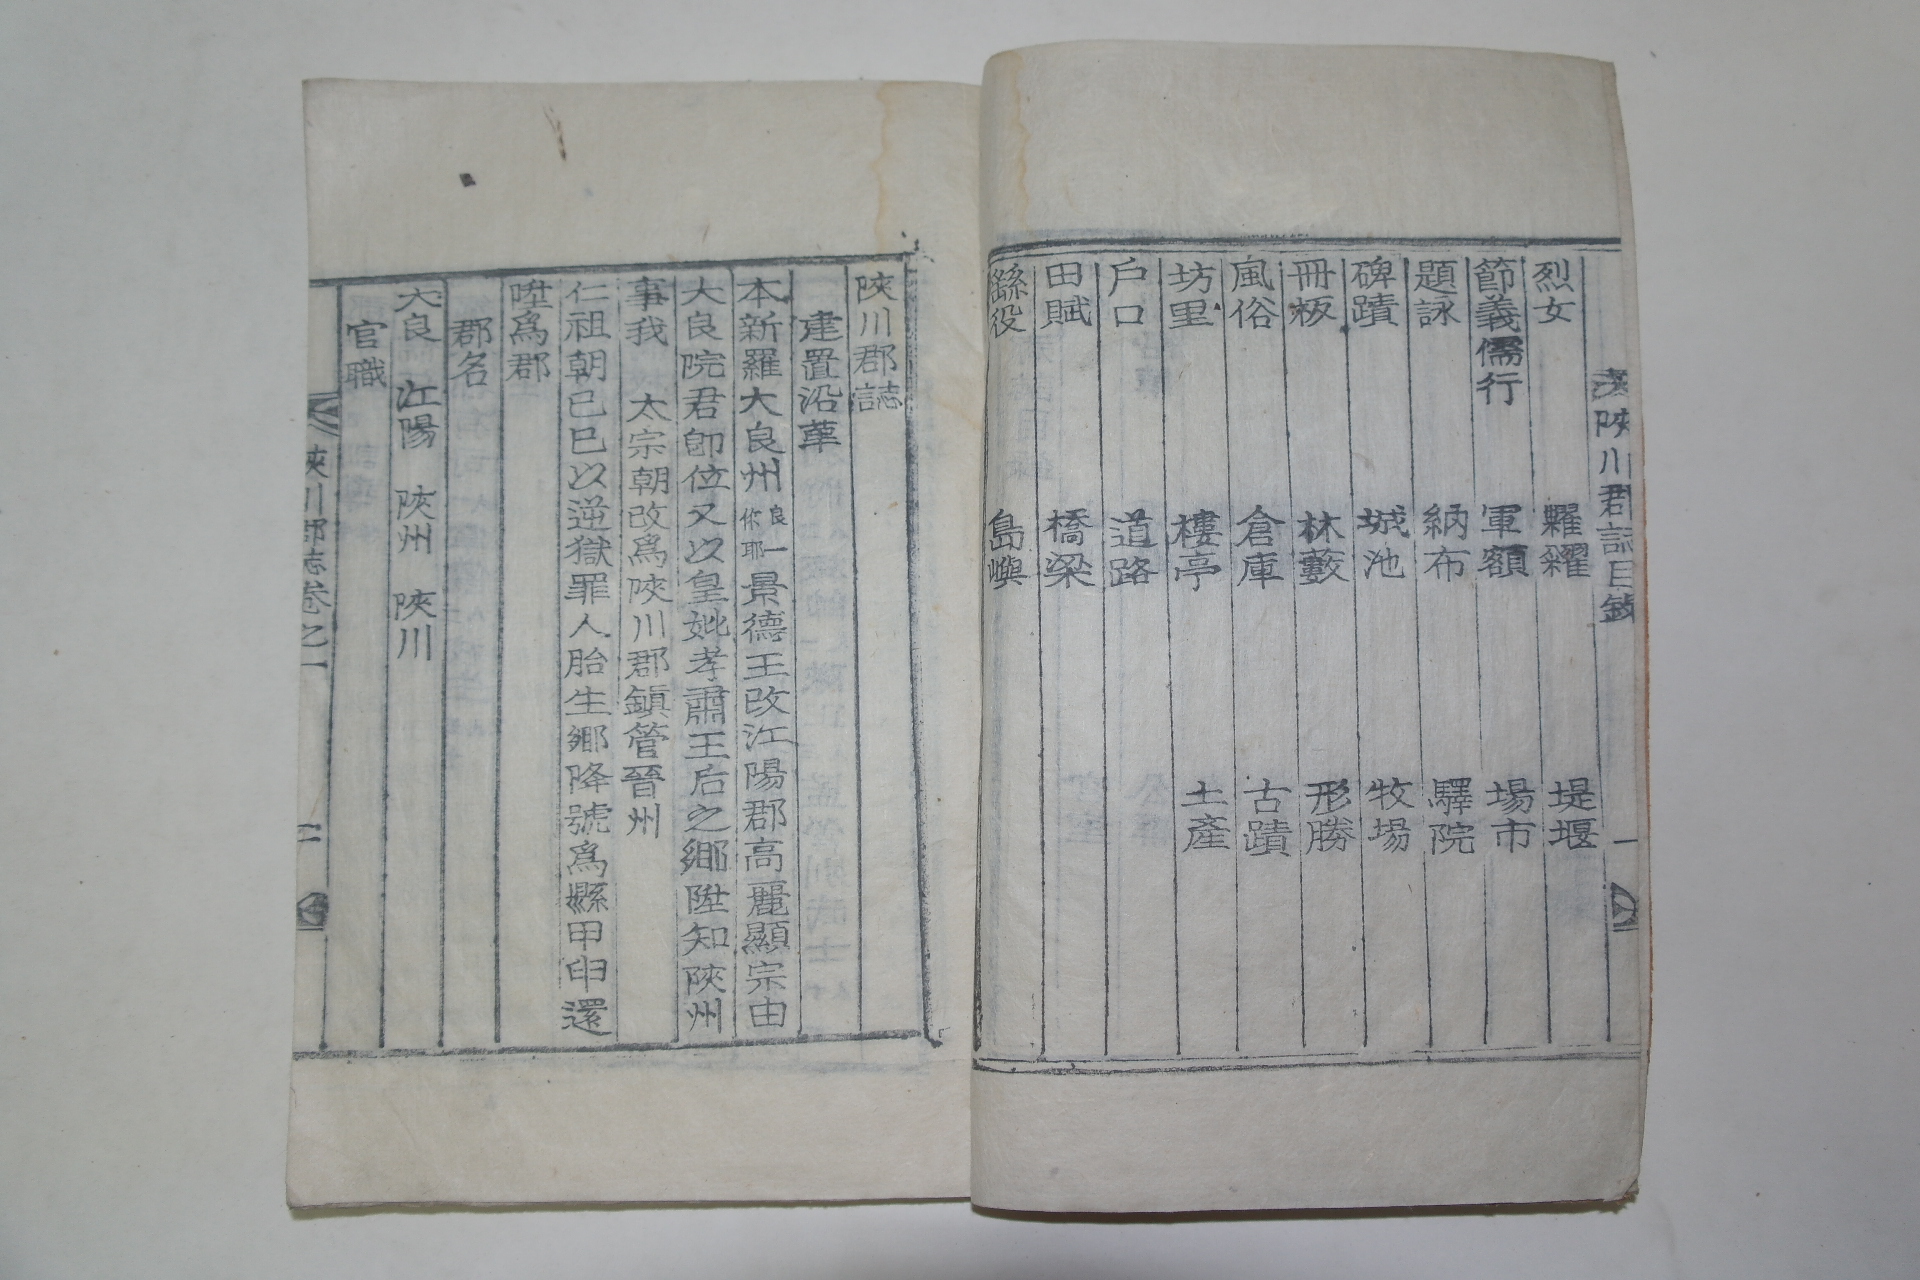 陜川郡誌目錄
一
烈女 糶糴 堤堰
節義儒行 軍額 場市
題詠 納布 驛院
碑蹟 城池 牧場
冊板 林藪 形勝
風俗 倉庫 古蹟
坊里 樓亭 土產
戶口 道路
田賦 橋梁
繇役 島嶼
陜川郡誌
建置沿革
本新羅大良州良一作耶景德王改江陽郡高麗顯宗由
大良院君卽位又以皇妣孝肅王后之鄕陞知陜州
事我 太宗朝改爲陜川郡鎭管晉州
仁祖朝己巳以逆獄罪人胎生鄕降號爲縣甲申還
陞爲郡
郡名
大良 江陽 陜州 陜川
官職
陜川郡誌卷之一
二